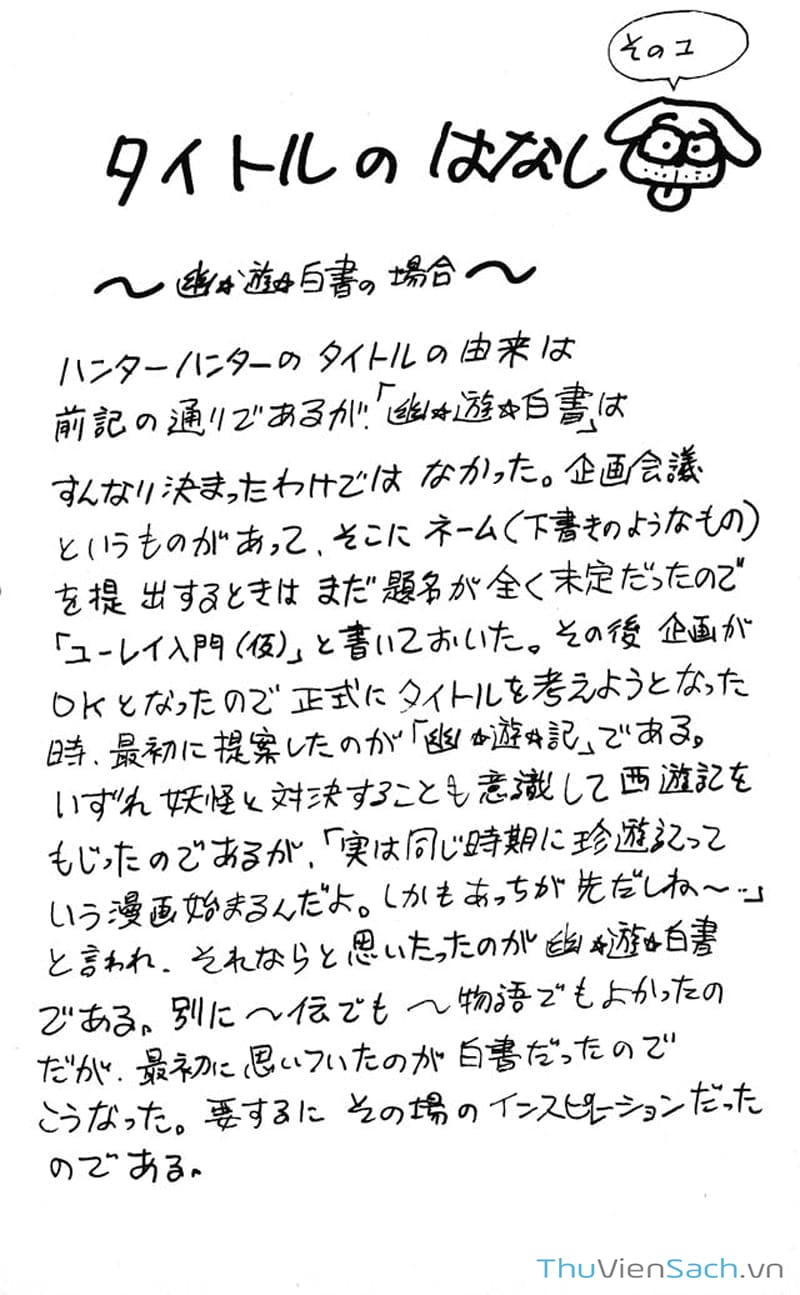 その2
タイトルの はなし
〜幽☆遊☆白書の 場合〜
ハンターハンターの タイトルの 由来は
前記の通りであるが、「幽☆遊☆白書」は
すんなり決まったわけでは なかった。企画会議
というものがあって、そこに ネーム(下書きのようなもの)
を提出するときは まだ題名が全く未定だったので
「ユーレイ入門(仮)」と書いておいた。その後 企画が
OKとなったので 正式にタイトルを考えようとなった
時、最初に提案したのが「幽☆遊☆記」である。
いずれ妖怪と対決することも意識して西遊記を
もじったのであるが、「実は同じ時期に珍遊記って
いう漫画始まるんだよ。しかもあっちが先だしね〜‥」
と言われ、それならと思いたったのが幽☆遊☆白書
である。別に〜伝でも〜物語でもよかったの
だが、最初に思いついたのが白書だったので
こうなった。要するに その場のインスピレーションだった
のである。
ThuVienSach.vn